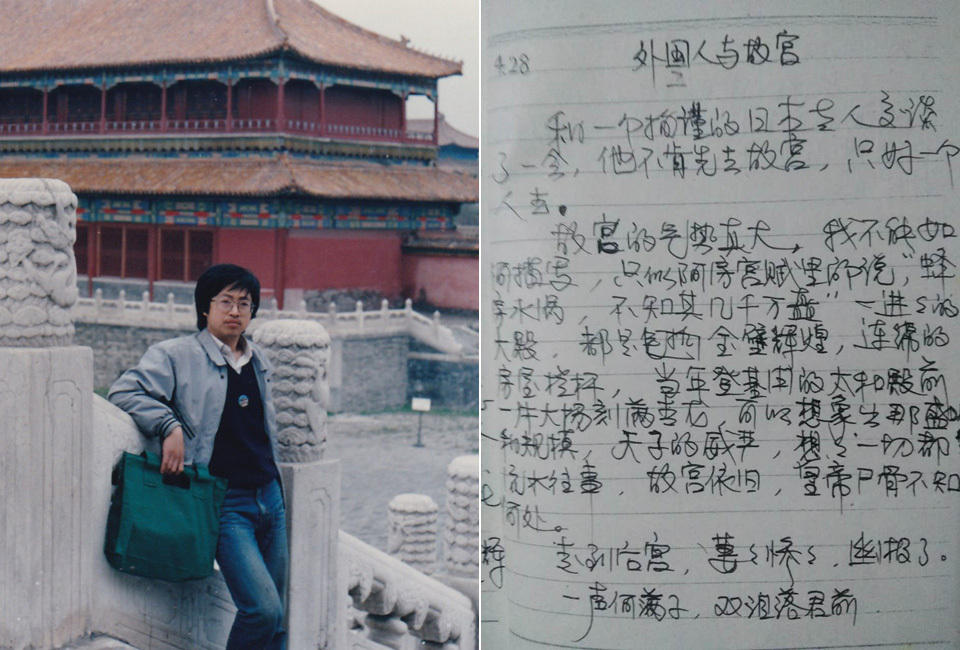 4.28 外国人与故宫
二
和一个拘谨的日本老人交谈
了一会，他不肯先去故宫，只好一个
人去。
故宫的气势真大，我不能如
何描写，只似阿房宫赋里所说，“蜂
房水涡 不知其几千万矗” 一进又的
大殿，都是包抱金璧辉煌，连绵的
房屋 当年登基用的太和殿前
一片大场刻满 龙，可以想象出那盛
和规模，天子的威严，想是一切都
流水往事，故宫依旧，皇帝尸骨不知
何处。
走到后宫，萋〻 〻，幽极了。
一声何满子，双泪落君前